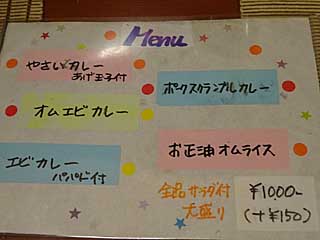 Menu
やさい カレー
あげ玉子付
ポークスクランブルカレー
オムエビ カレー
エビ カレー
パパド付
お正油 オムライス
全品 サラダ付
大盛り
¥1000-
(+¥150)